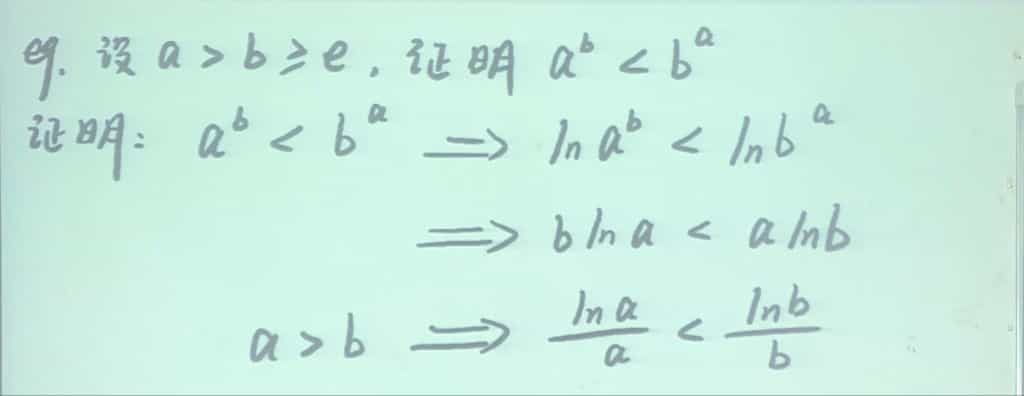 eg. 设 a > b ≥ e, 证明 a^b < b^a
证明: a^b < b^a ⟹ ln a^b < ln b^a
⟹ b ln a < a ln b
a > b ⟹ \frac{ln a}{a} < \frac{ln b}{b}